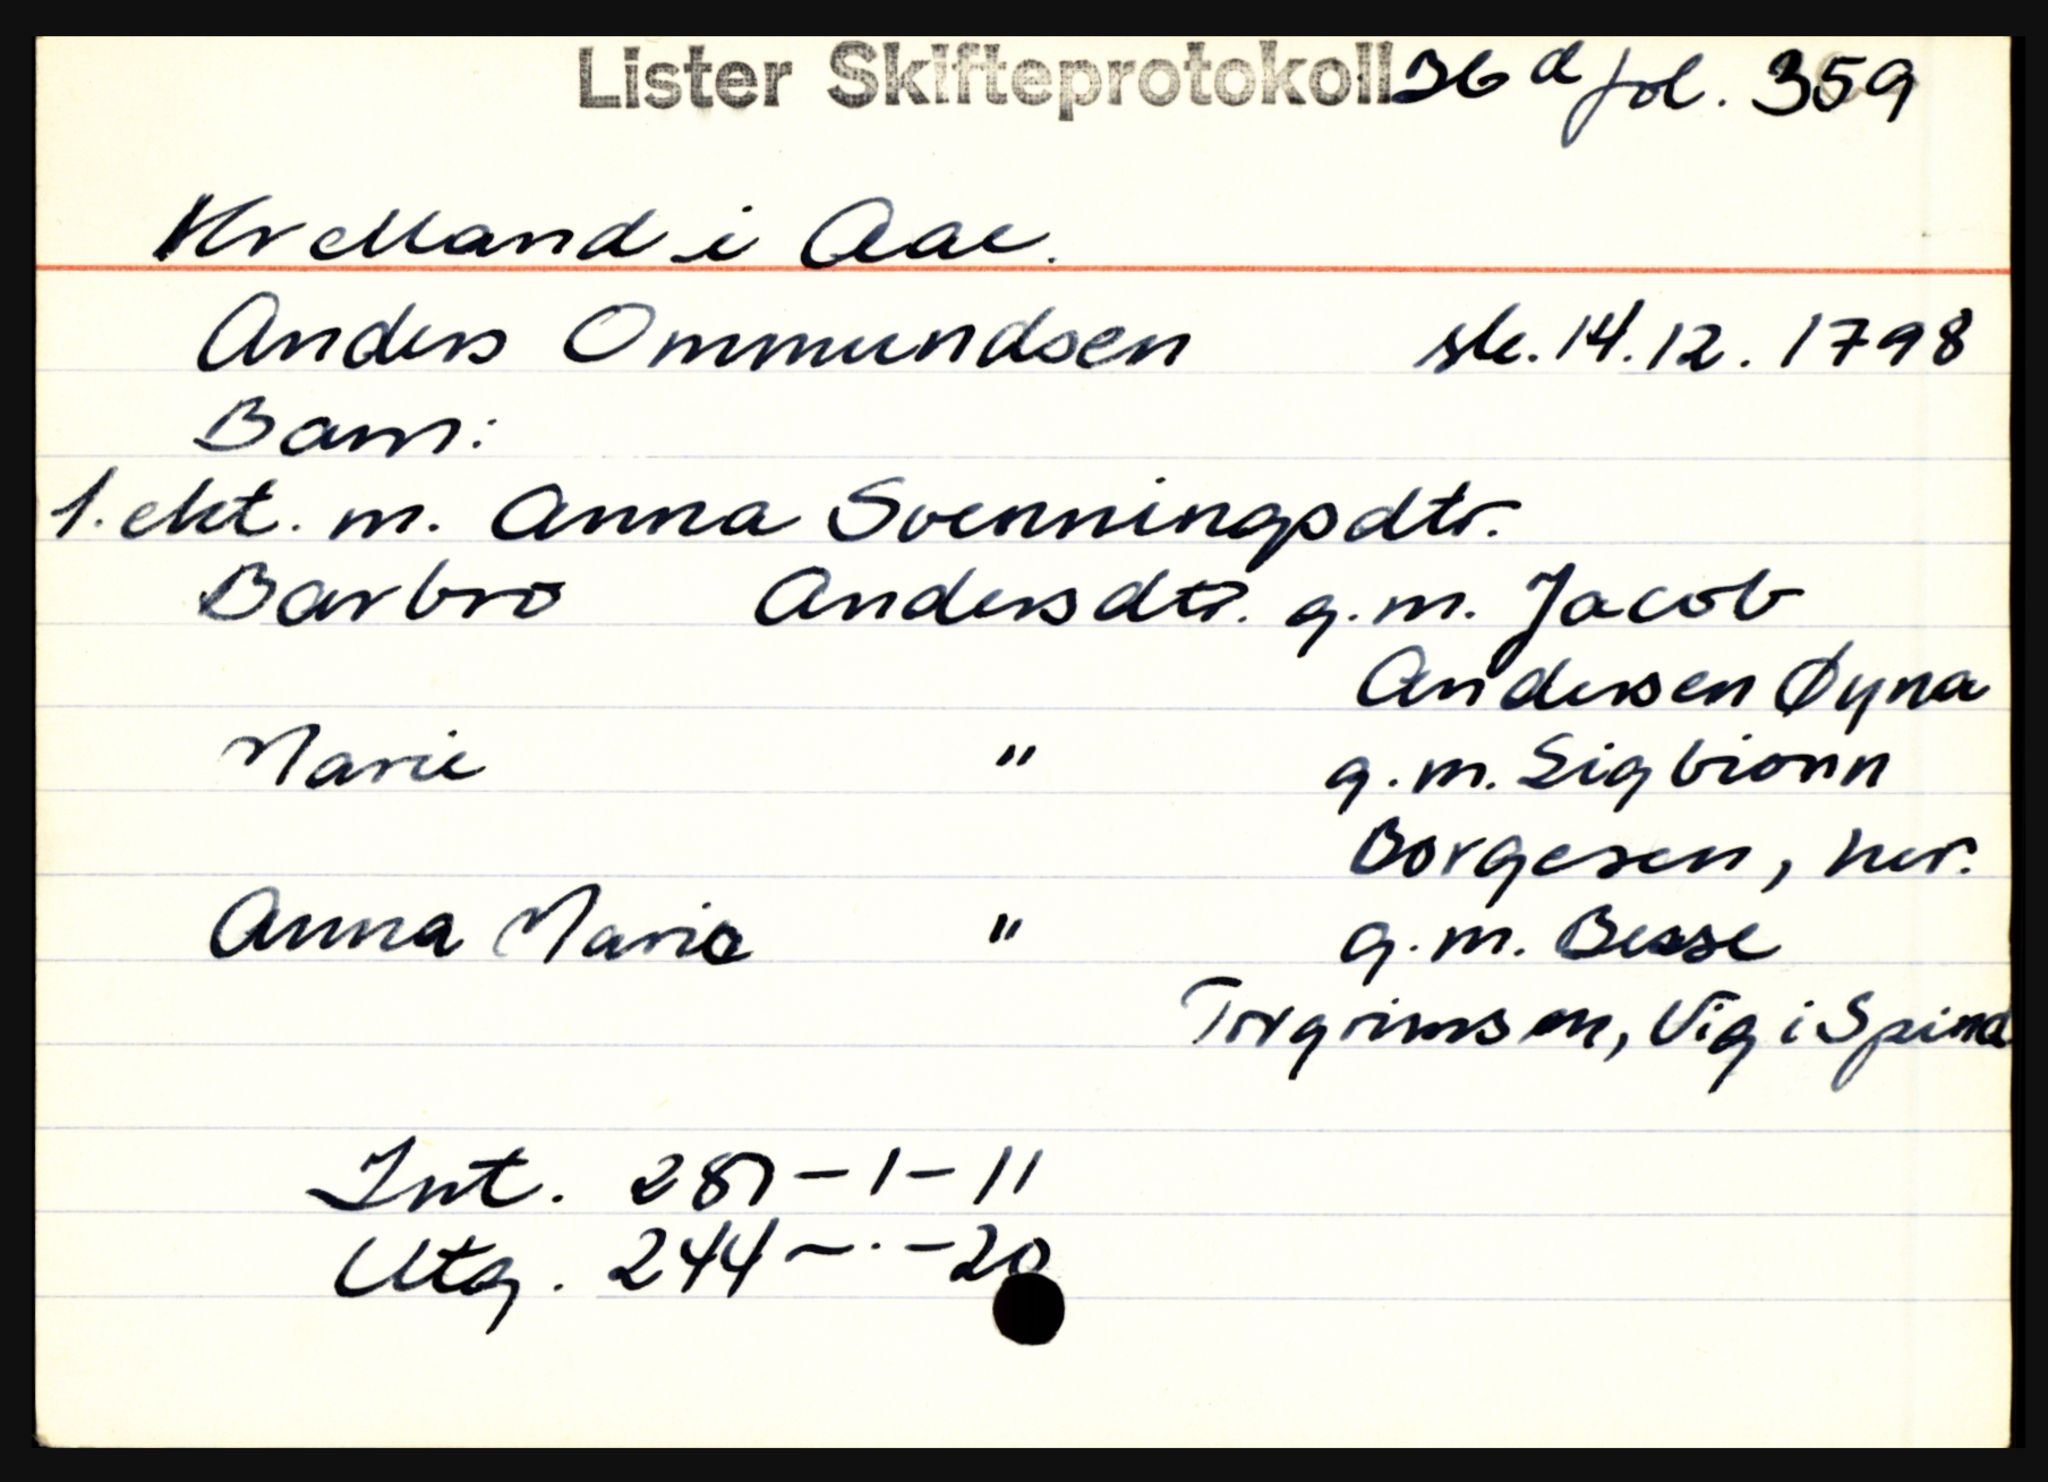 Lister Skifteprotokoll 36 d fol. 359
Kvelland i Aae.
Anders Ommundsen sk. 14.12.1798
Barn:
1. ekt. m. Anna Svenningsdtr.
Barbro Andersdtr. g.m. Jacob
Andersen Øyna
Marie " g.m. Sigbiørn
Børgesen, her.
Anna Marie " g.m. Besse
Torgrimsen, Vig i Spind
Int. 287-1-11
Utg. 244-.-20